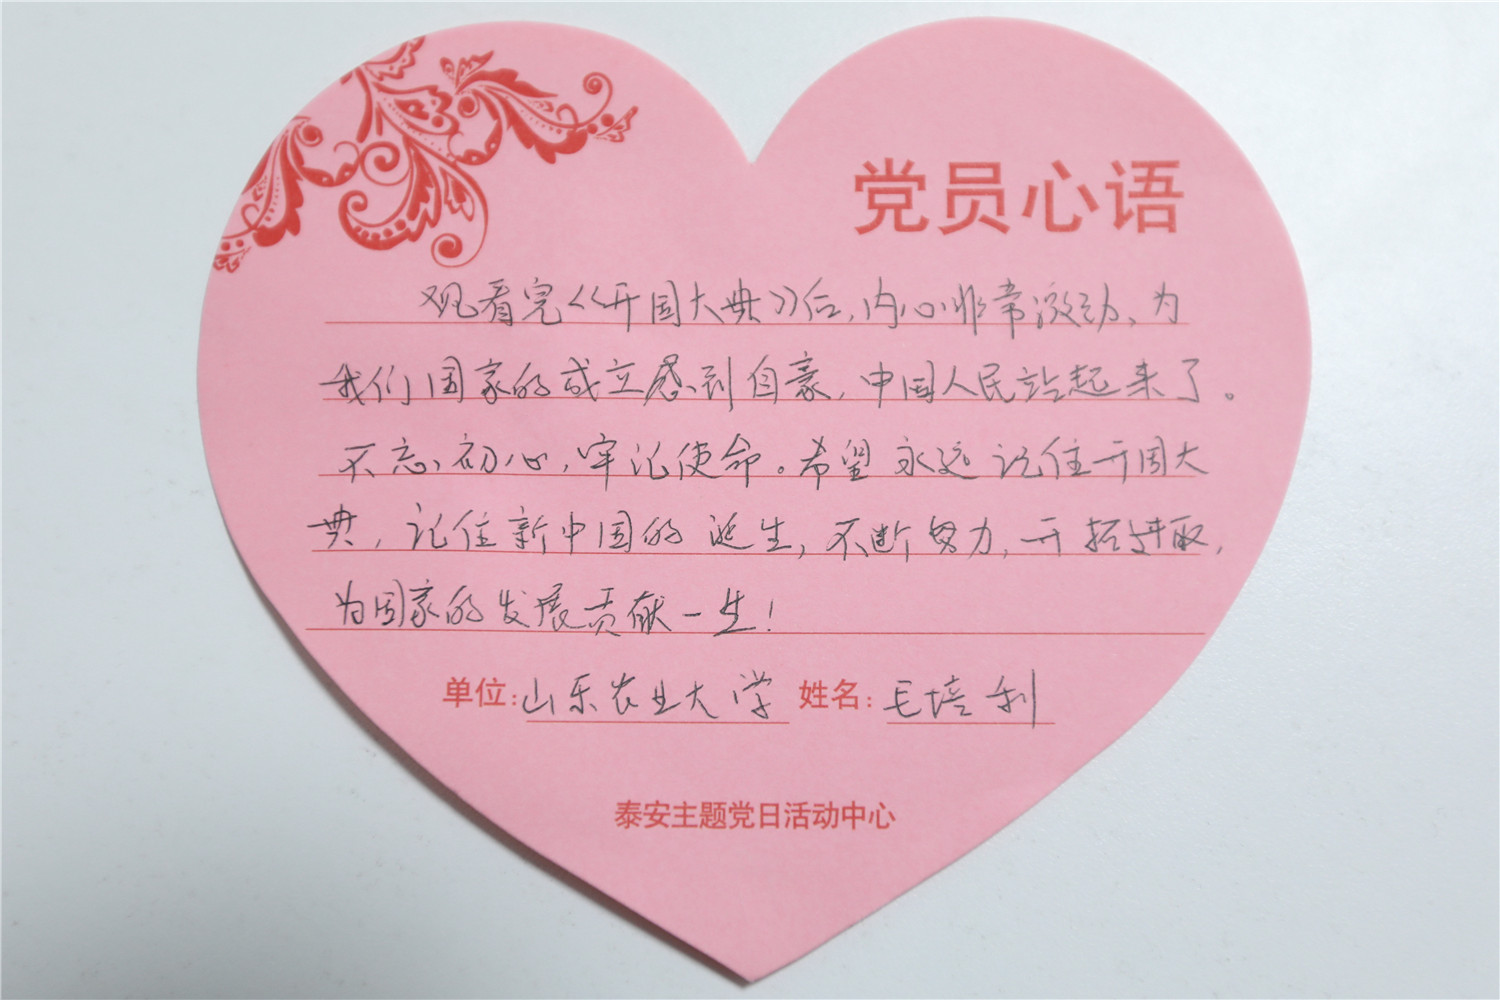 党员心语
观看完《开国大典》后,内心非常激动、为
我们国家的成立感到自豪,中国人民站起来了。
不忘初心,牢记使命。希望永远记住开国大
典,记住新中国的诞生,不断努力,开拓进取,
为国家的发展贡献一生!
单位:山东农业大学 姓名:毛培利
泰安主题党日活动中心